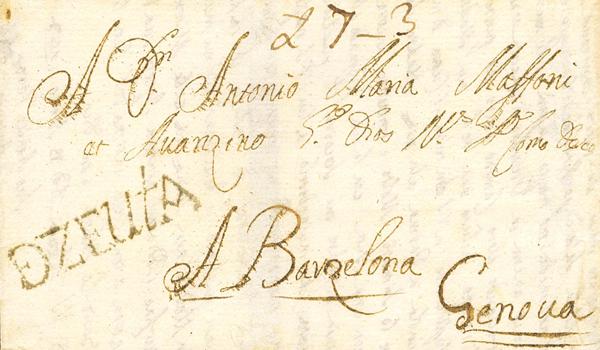 27-3
A Dn Antonio Maria Massoni
et Auanzino Gde Dios Ms As Como Deseo
DZEUTA
A Barzelona
Genoua